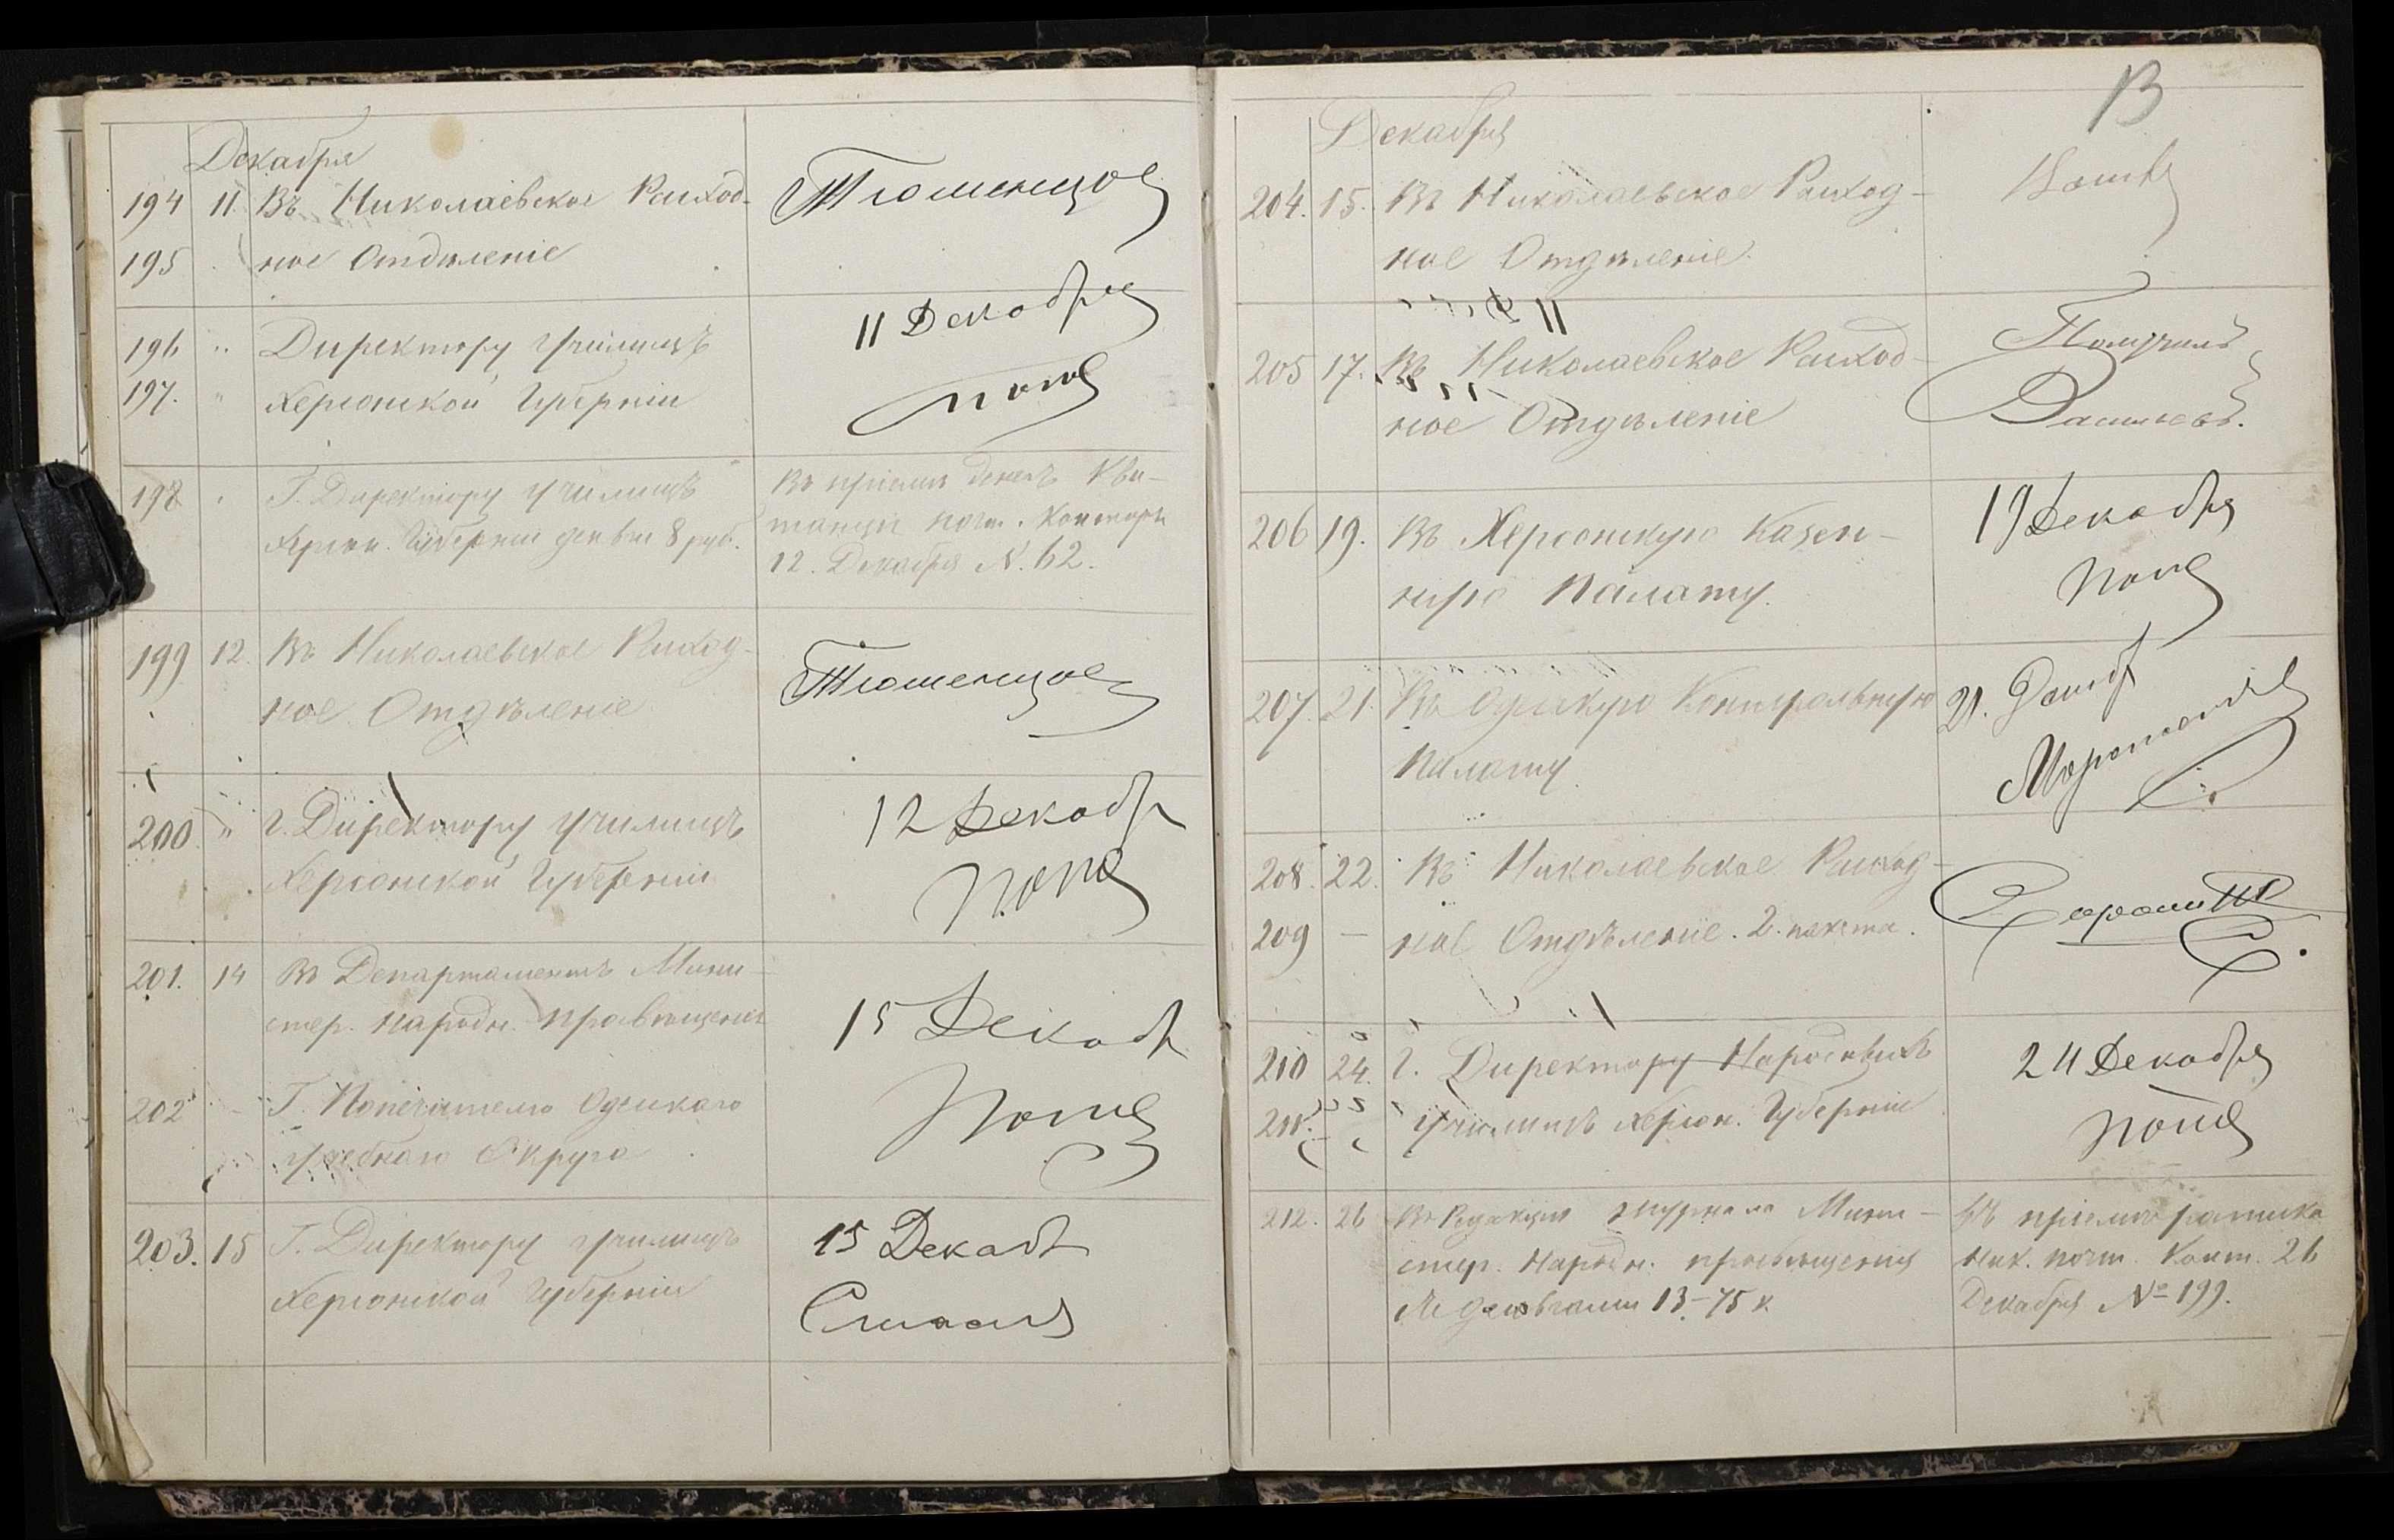 Декабря
194 11. Въ Николаевское Расход-
195 ное Отдѣленіе
Тюменцов
196 " Директору училищъ
197. " Херсонской Губерніи
11 Декабря
198 Г. Директору училищъ
Херсон. Губерніи деньги 8 руб.
Въ пріемѣ денегъ Кви-
танція почт. Конторы
12. Декабря N. 62.
199 12. Въ Николаевское Расход-
ное Отдѣленіе
Тюменцов
200 " г. Директору училищъ
Херсонской Губерніи
12 Декабр
201. 14 Въ Департаментъ Мини-
стер. народн. просвѣщенія
15 Декаб
202 Г. Попечителю Одесскаго
Учебнаго Округа
203. 15 Г. Директору училищъ
Херсонской Губерніи
15 Декаб
13
Декабря
204. 15. Въ Николаевское Расход-
ное Отдѣленіе.
205 17. Въ Николаевское Расход-
ное Отдѣленіе
Получилъ
Васильевъ.
206 19. Въ Херсонскую Казен-
ную Палату.
19 Декабря
207. 21. Въ Одесскую Контрольную
Палату.
21.
208. 22. Въ Николаевское Расход-
209 — ное Отдѣленіе. 2. пакета.
210 24. г. Директору Народныхъ
211. училищъ Херсон. Губерніи
24 Декабря
212. 26 Въ Редакцію журнала Мини-
стер. Народн. просвѣщенія
съ деньгами 13.–75 к.
Въ пріемѣ росписка
Ник. почт. Конт. 26
Декабря № 199.